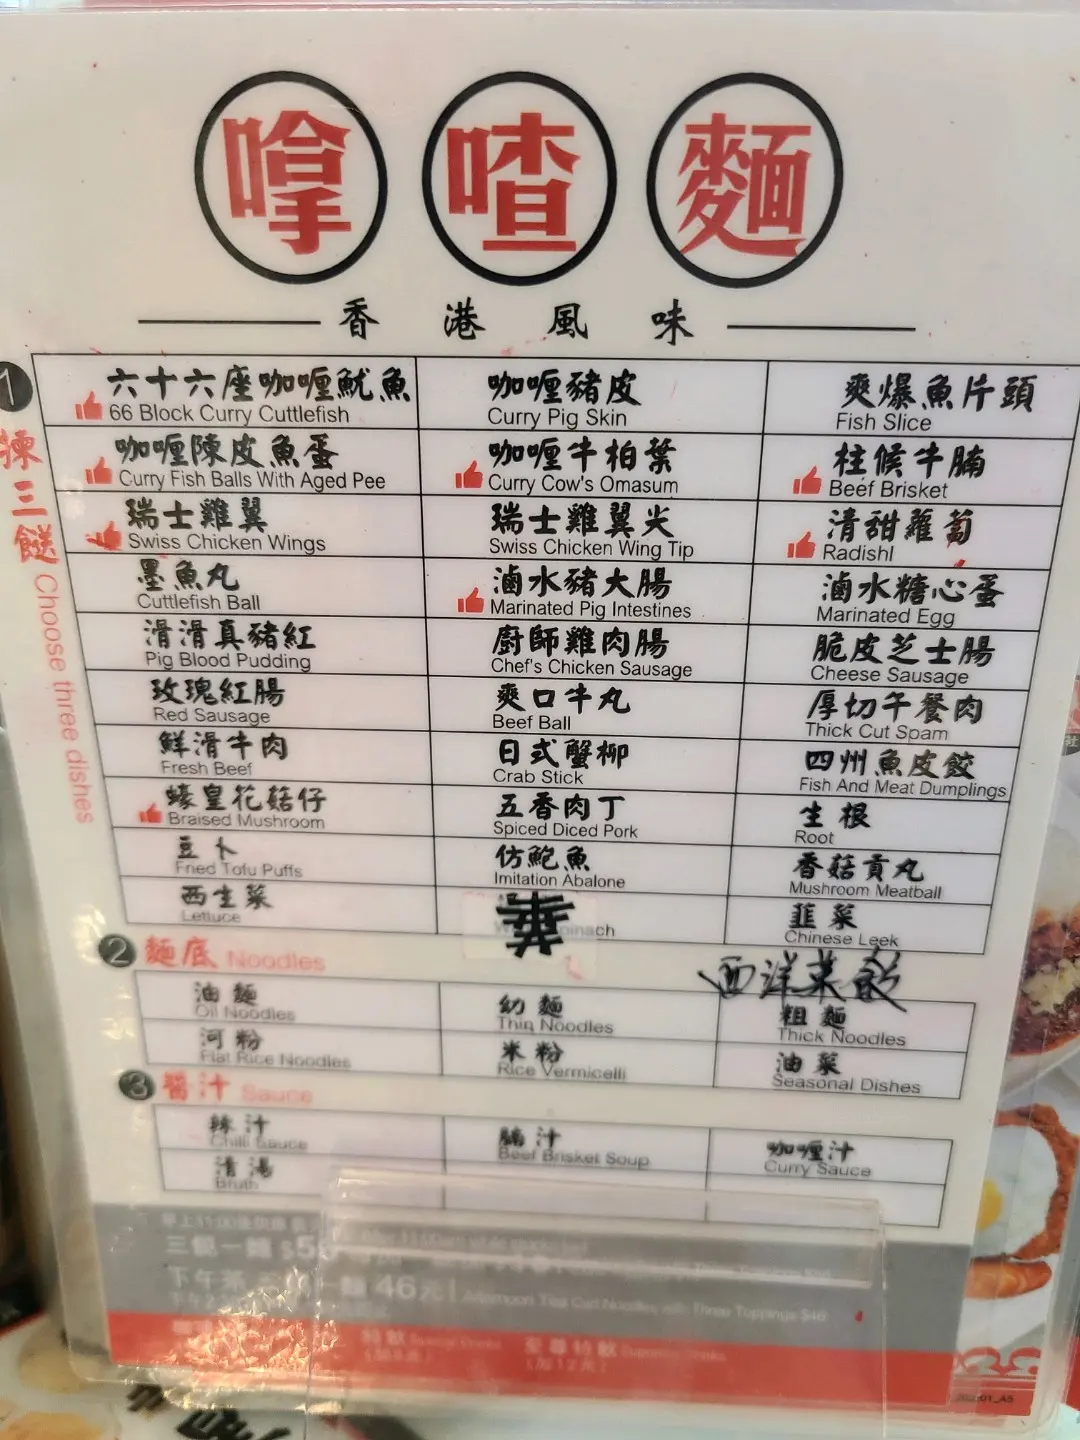 嗱喳麵
香港風味
1 揀三餸 Choose three dishes
六十六座咖喱魷魚 咖喱豬皮 爽爆魚片頭
66 Block Curry Cuttlefish Curry Pig Skin Fish Slice
咖喱陳皮魚蛋 咖喱牛柏葉 柱候牛腩
Curry Fish Balls With Aged Pee Curry Cow's Omasum Beef Brisket
瑞士雞翼 瑞士雞翼尖 清甜蘿蔔
Swiss Chicken Wings Swiss Chicken Wing Tip Radishl
墨魚丸 滷水豬大腸 滷水糖心蛋
Cuttlefish Ball Marinated Pig Intestines Marinated Egg
滑滑真豬紅 廚師雞肉腸 脆皮芝士腸
Pig Blood Pudding Chef's Chicken Sausage Cheese Sausage
玫瑰紅腸 爽口牛丸 厚切午餐肉
Red Sausage Beef Ball Thick Cut Spam
鮮滑牛肉 日式蟹柳 四州魚皮餃
Fresh Beef Crab Stick Fish And Meat Dumplings
蠔皇花菇仔 五香肉丁 生根
Braised Mushroom Spiced Diced Pork Root
豆卜 仿鮑魚 香菇貢丸
Fried Tofu Puffs Imitation Abalone Mushroom Meatball
西生菜 韮菜
Lettuce Chinese Leek
西洋菜餃
2 麵底 Noodles
油麵 幼麵 粗麵
Oil Noodles Thin Noodles Thick Noodles
河粉 米粉 油菜
Flat Rice Noodles Rice Vermicelli Seasonal Dishes
3 醬汁 Sauce
辣汁 腩汁 咖喱汁
Chilli Sauce Beef Brisket Soup Curry Sauce
清湯
Bruth
三餸一麵 $5
下午茶 麵 46元 Afternoon Tea Cart Noodles with Three Toppings $46
特飲 Special Drinks 至尊特飲 Supreme Drinks